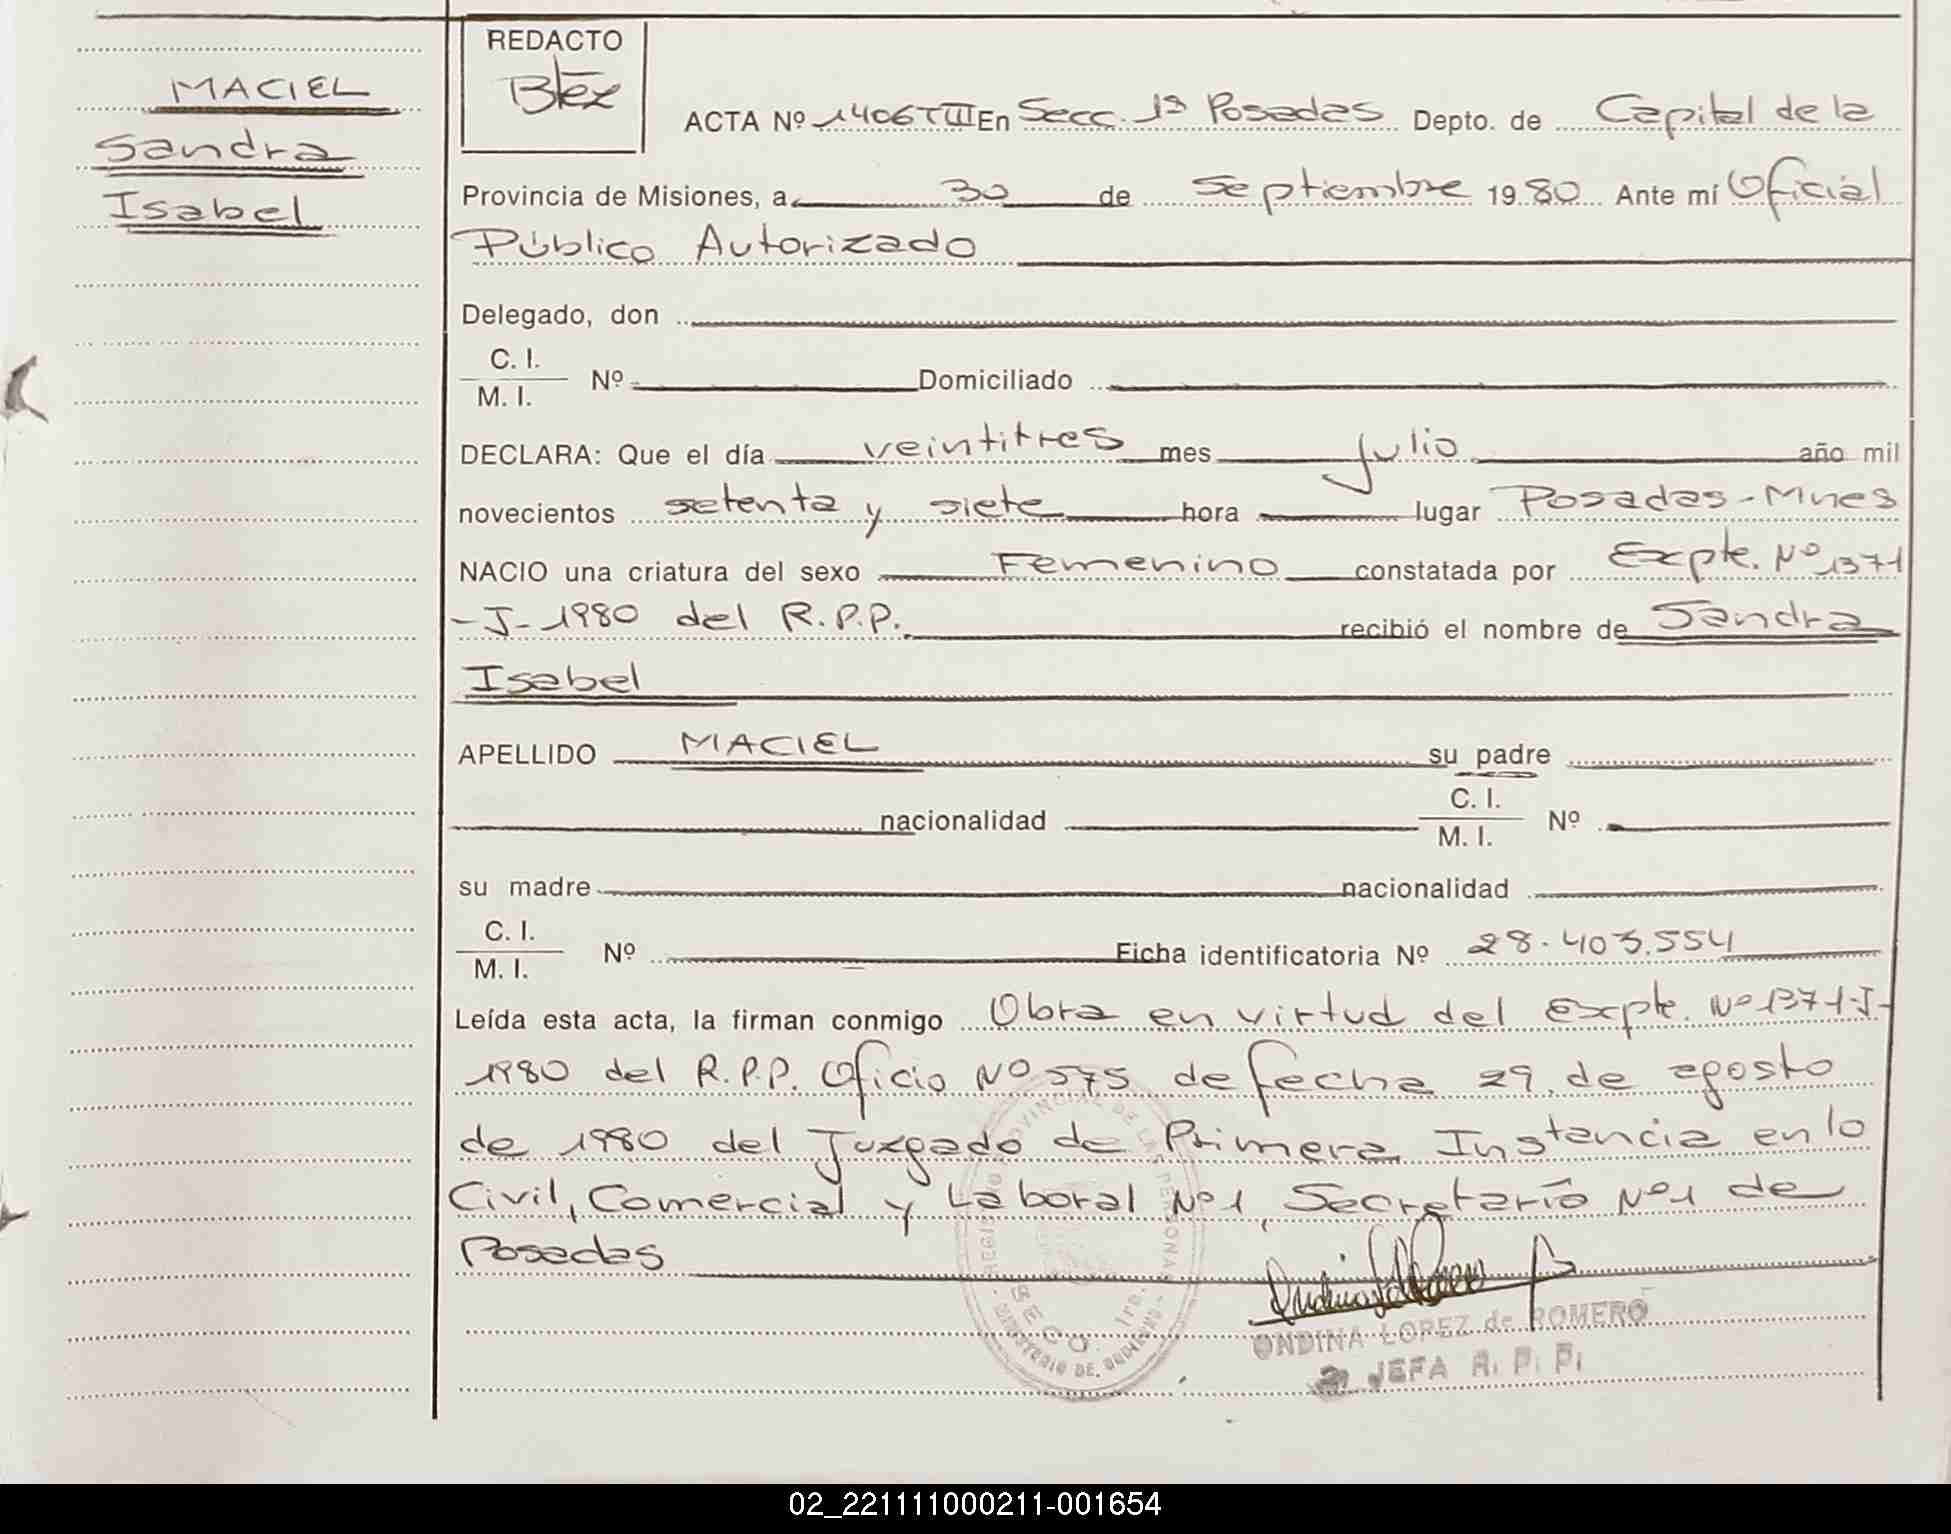 MACIEL
Sandra
Isabel
REDACTO
ACTA Nº 1406 TIII En Secc. 1ª Posadas Depto. de Capital de la
Provincia de Misiones, a 30 de Septiembre 1980 Ante mí Oficial
Público Autorizado
Delegado, don
C. I.
M. I. Nº Domiciliado
DECLARA: Que el día veintitres mes Julio año mil
novecientos setenta y siete hora lugar Posadas-Mnes
NACIO una criatura del sexo Femenino constatada por Expte. Nº 1371
-J-1980 del R.P.P. recibió el nombre de Sandra
Isabel
APELLIDO MACIEL su padre
nacionalidad C. I.
M. I. Nº
su madre nacionalidad
C. I.
M. I. Nº Ficha identificatoria Nº 28.403.554
Leída esta acta, la firman conmigo Obra en virtud del Expte. Nº 1371-J-
1980 del R.P.P. Oficio Nº 575 de fecha 29 de agosto
de 1980 del Juzgado de Primera Instancia en lo
Civil, Comercial y Laboral Nº 1, Secretaría Nº 1 de
Posadas
REGISTRO PROVINCIAL DE LAS PERSONAS
SECC. 1ra.
MINISTERIO DE GOBIERNO
ONDINA LOPEZ de ROMERO
JEFA R. P. P.
02_221111000211-001654